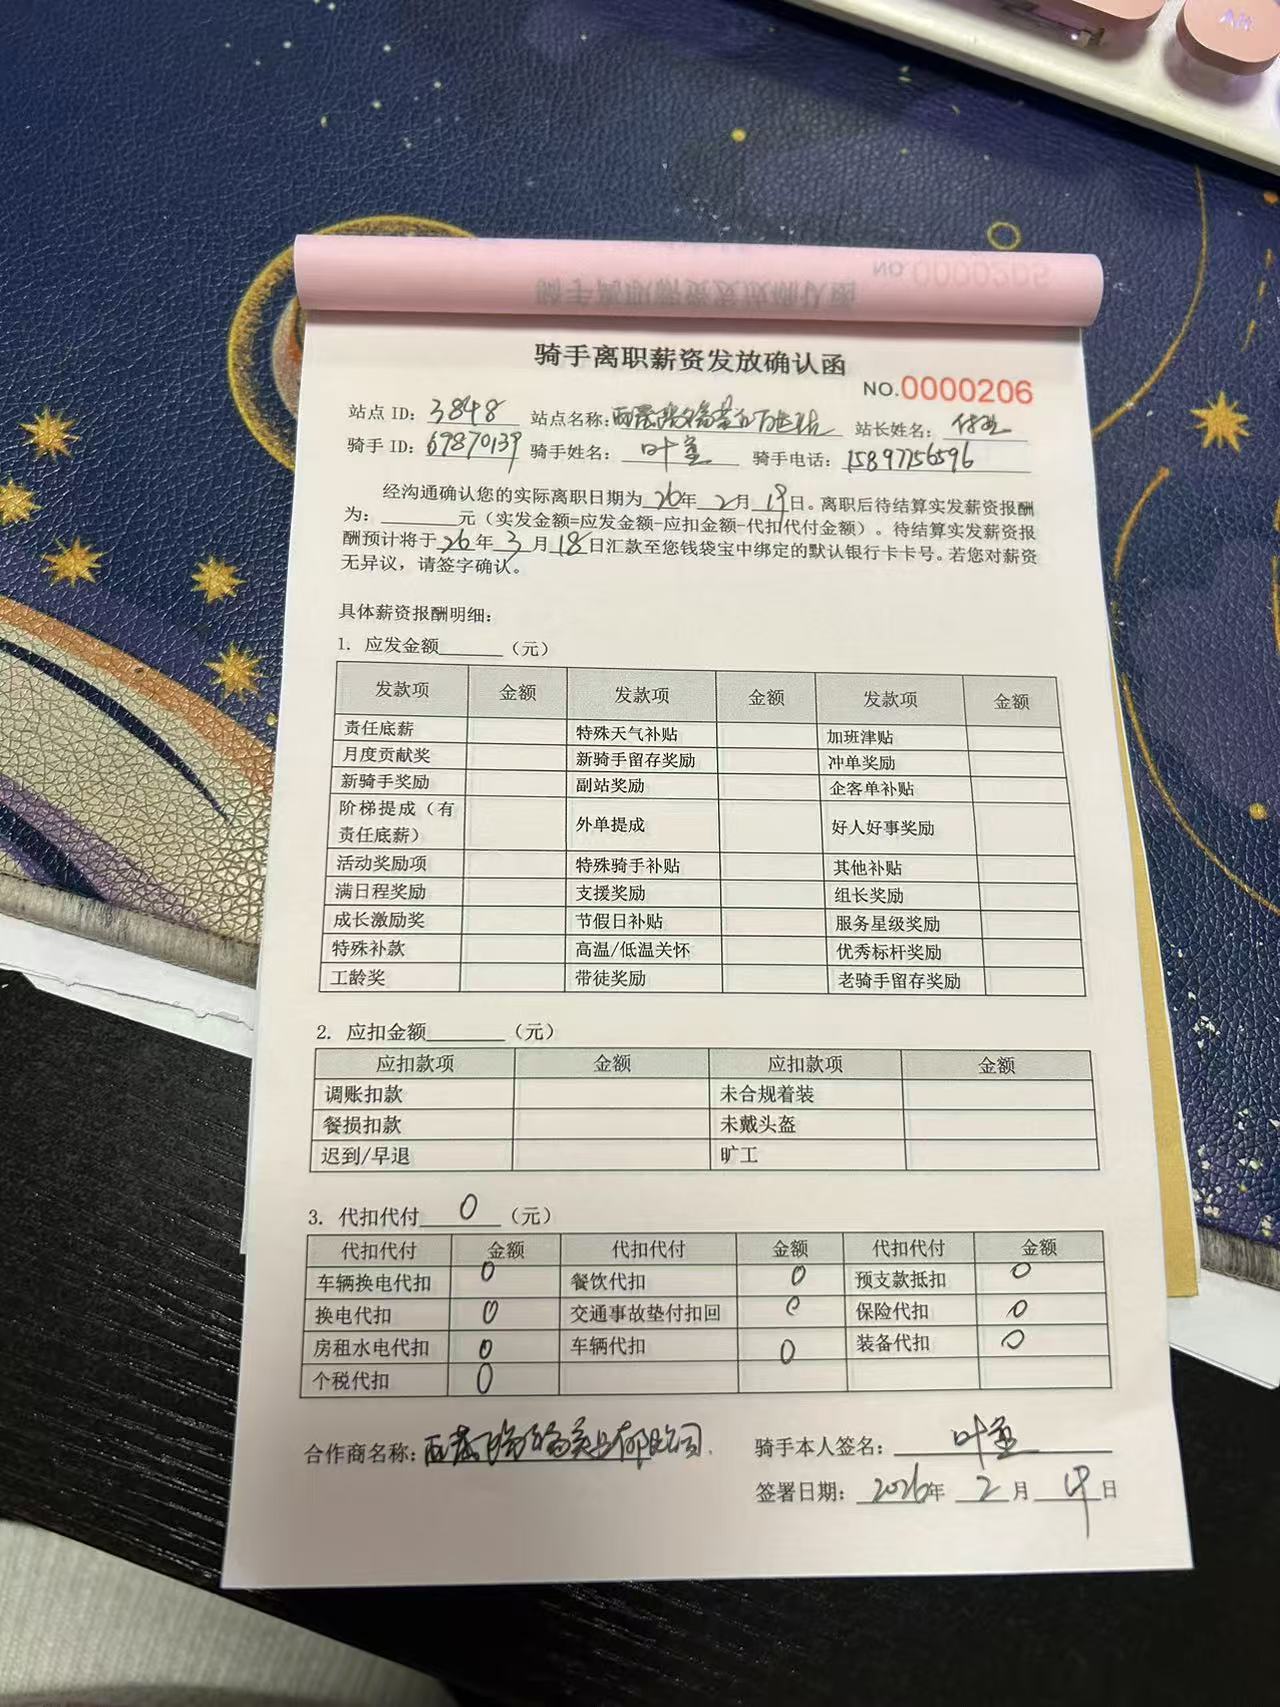 NO.0000205
骑手离职薪资发放确认函
骑手离职薪资发放确认函
NO.0000206
站点 ID: 3848 站点名称: 站长姓名:
骑手 ID: 69870139 骑手姓名: 叶 骑手电话: 15897756596
经沟通确认您的实际离职日期为26年2月19日。离职后待结算实发薪资报酬
为:______元（实发金额=应发金额-应扣金额-代扣代付金额）。待结算实发薪资报
酬预计将于26年3月18日汇款至您钱袋宝中绑定的默认银行卡卡号。若您对薪资
无异议，请签字确认。
具体薪资报酬明细:
1. 应发金额______（元）
发款项 金额 发款项 金额 发款项 金额
责任底薪 特殊天气补贴 加班津贴
月度贡献奖 新骑手留存奖励 冲单奖励
新骑手奖励 副站奖励 企客单补贴
阶梯提成（有
责任底薪） 外单提成 好人好事奖励
活动奖励项 特殊骑手补贴 其他补贴
满日程奖励 支援奖励 组长奖励
成长激励奖 节假日补贴 服务星级奖励
特殊补款 高温/低温关怀 优秀标杆奖励
工龄奖 带徒奖励 老骑手留存奖励
2. 应扣金额______（元）
应扣款项 金额 应扣款项 金额
调账扣款 未合规着装
餐损扣款 未戴头盔
迟到/早退 旷工
3. 代扣代付 0 （元）
代扣代付 金额 代扣代付 金额 代扣代付 金额
车辆换电代扣 0 餐饮代扣 0 预支款抵扣 0
换电代扣 0 交通事故垫付扣回 0 保险代扣 0
房租水电代扣 0 车辆代扣 0 装备代扣 0
个税代扣 0
合作商名称: 有限公司 骑手本人签名: 叶
签署日期: 2026年 2月 19日
Alt